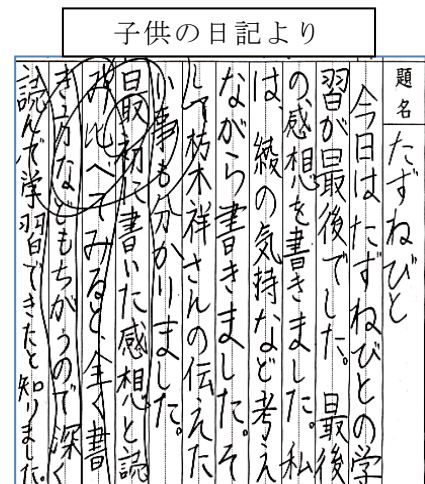 子供の日記より
題名
たずねびと
今日はたずねびとの学
習が最後でした。最後
の感想を書きました。私
は、綾の気持など考え
ながら書きました。そ
して朽木祥さんの伝えた
い事も分かりました。
最初に書いた感想と読
み比べてみると、全く書
き方などもちがうので深く
読んで学習できたと知りました。